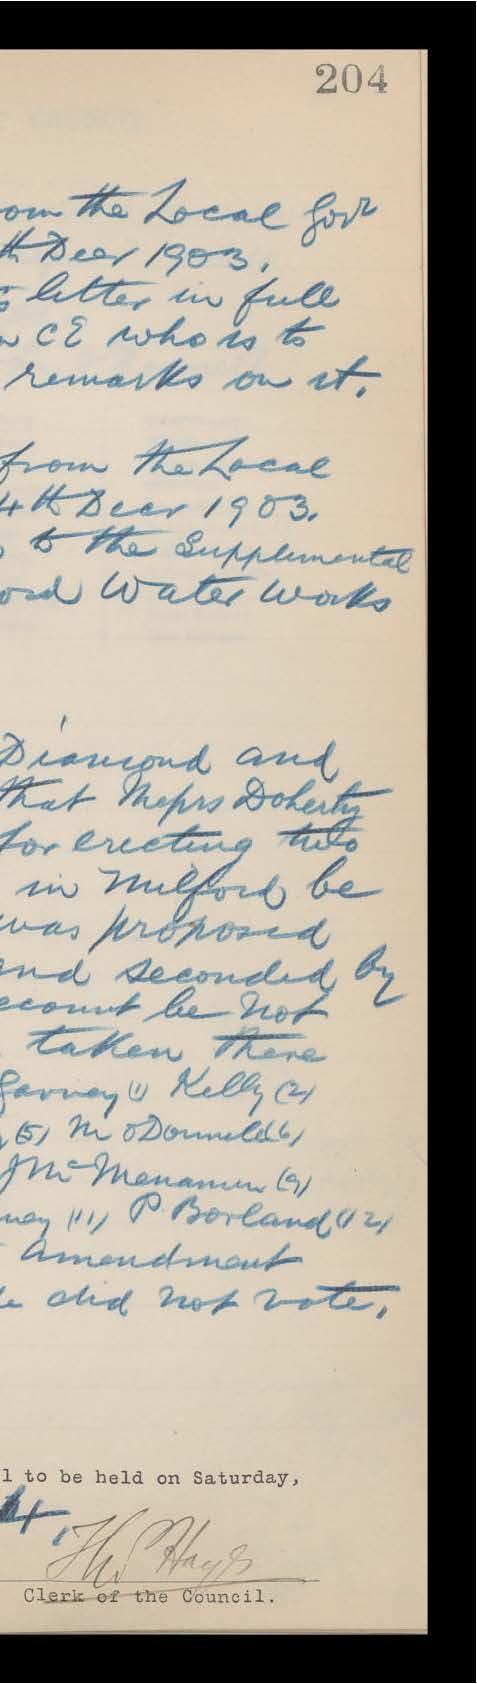 204
om the Local Govt
th Decr 1903.
letter in full
CE who is to
remarks on it.
from the Local
4th Decr 1903.
to the Supplemental
ord Water Works
Diamond and
that Messrs Doherty
for erecting two
in Milford be
was proposed
and seconded by
ccount be not
taken There
Garvey (1) Kelly (2)
(5) M ODonnell (6)
J McMenamin (9)
ney (11) P Borland (12)
Amendment
did not vote.
l to be held on Saturday,
4.
Thos Hayes
Clerk of the Council.